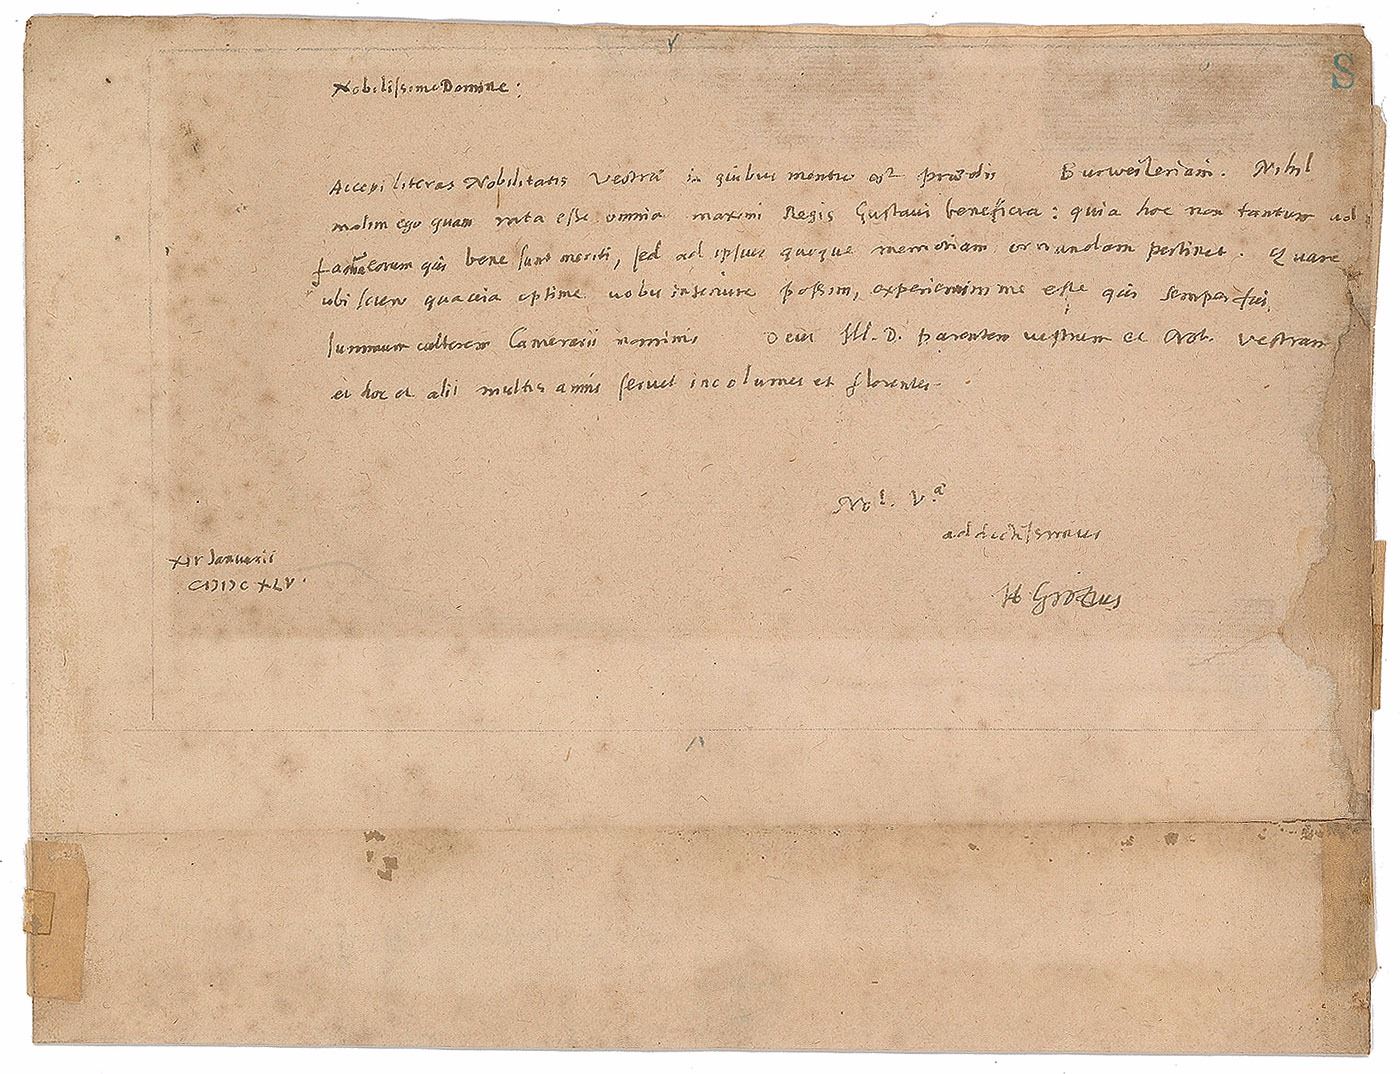 S
Nobilissime Domine:
Accepi literas Nobilitatis Vestræ in quibus mentio est prædii Burweileriani. Nihil
malim ego quam rata esse omnia maximi Regis Gustavi beneficia: quia hoc non tantum ad
famam eorum qui bene sunt meriti, sed ad ipsius quoque memoriam ornandam pertinet. Quare
ubi sciero qua via optime vobis inservire possim, experiemini me esse qui semper fui,
summum cultorem Camerarii nominis Deus Ill. D. parentem vestrum et Nob. Vestram
et hoc et aliis multis annis servet incolumes et florentes.
Nol. Vᵃ
addictissimus
H Grotius
XIV Januarii
CIƆIƆC XLV.